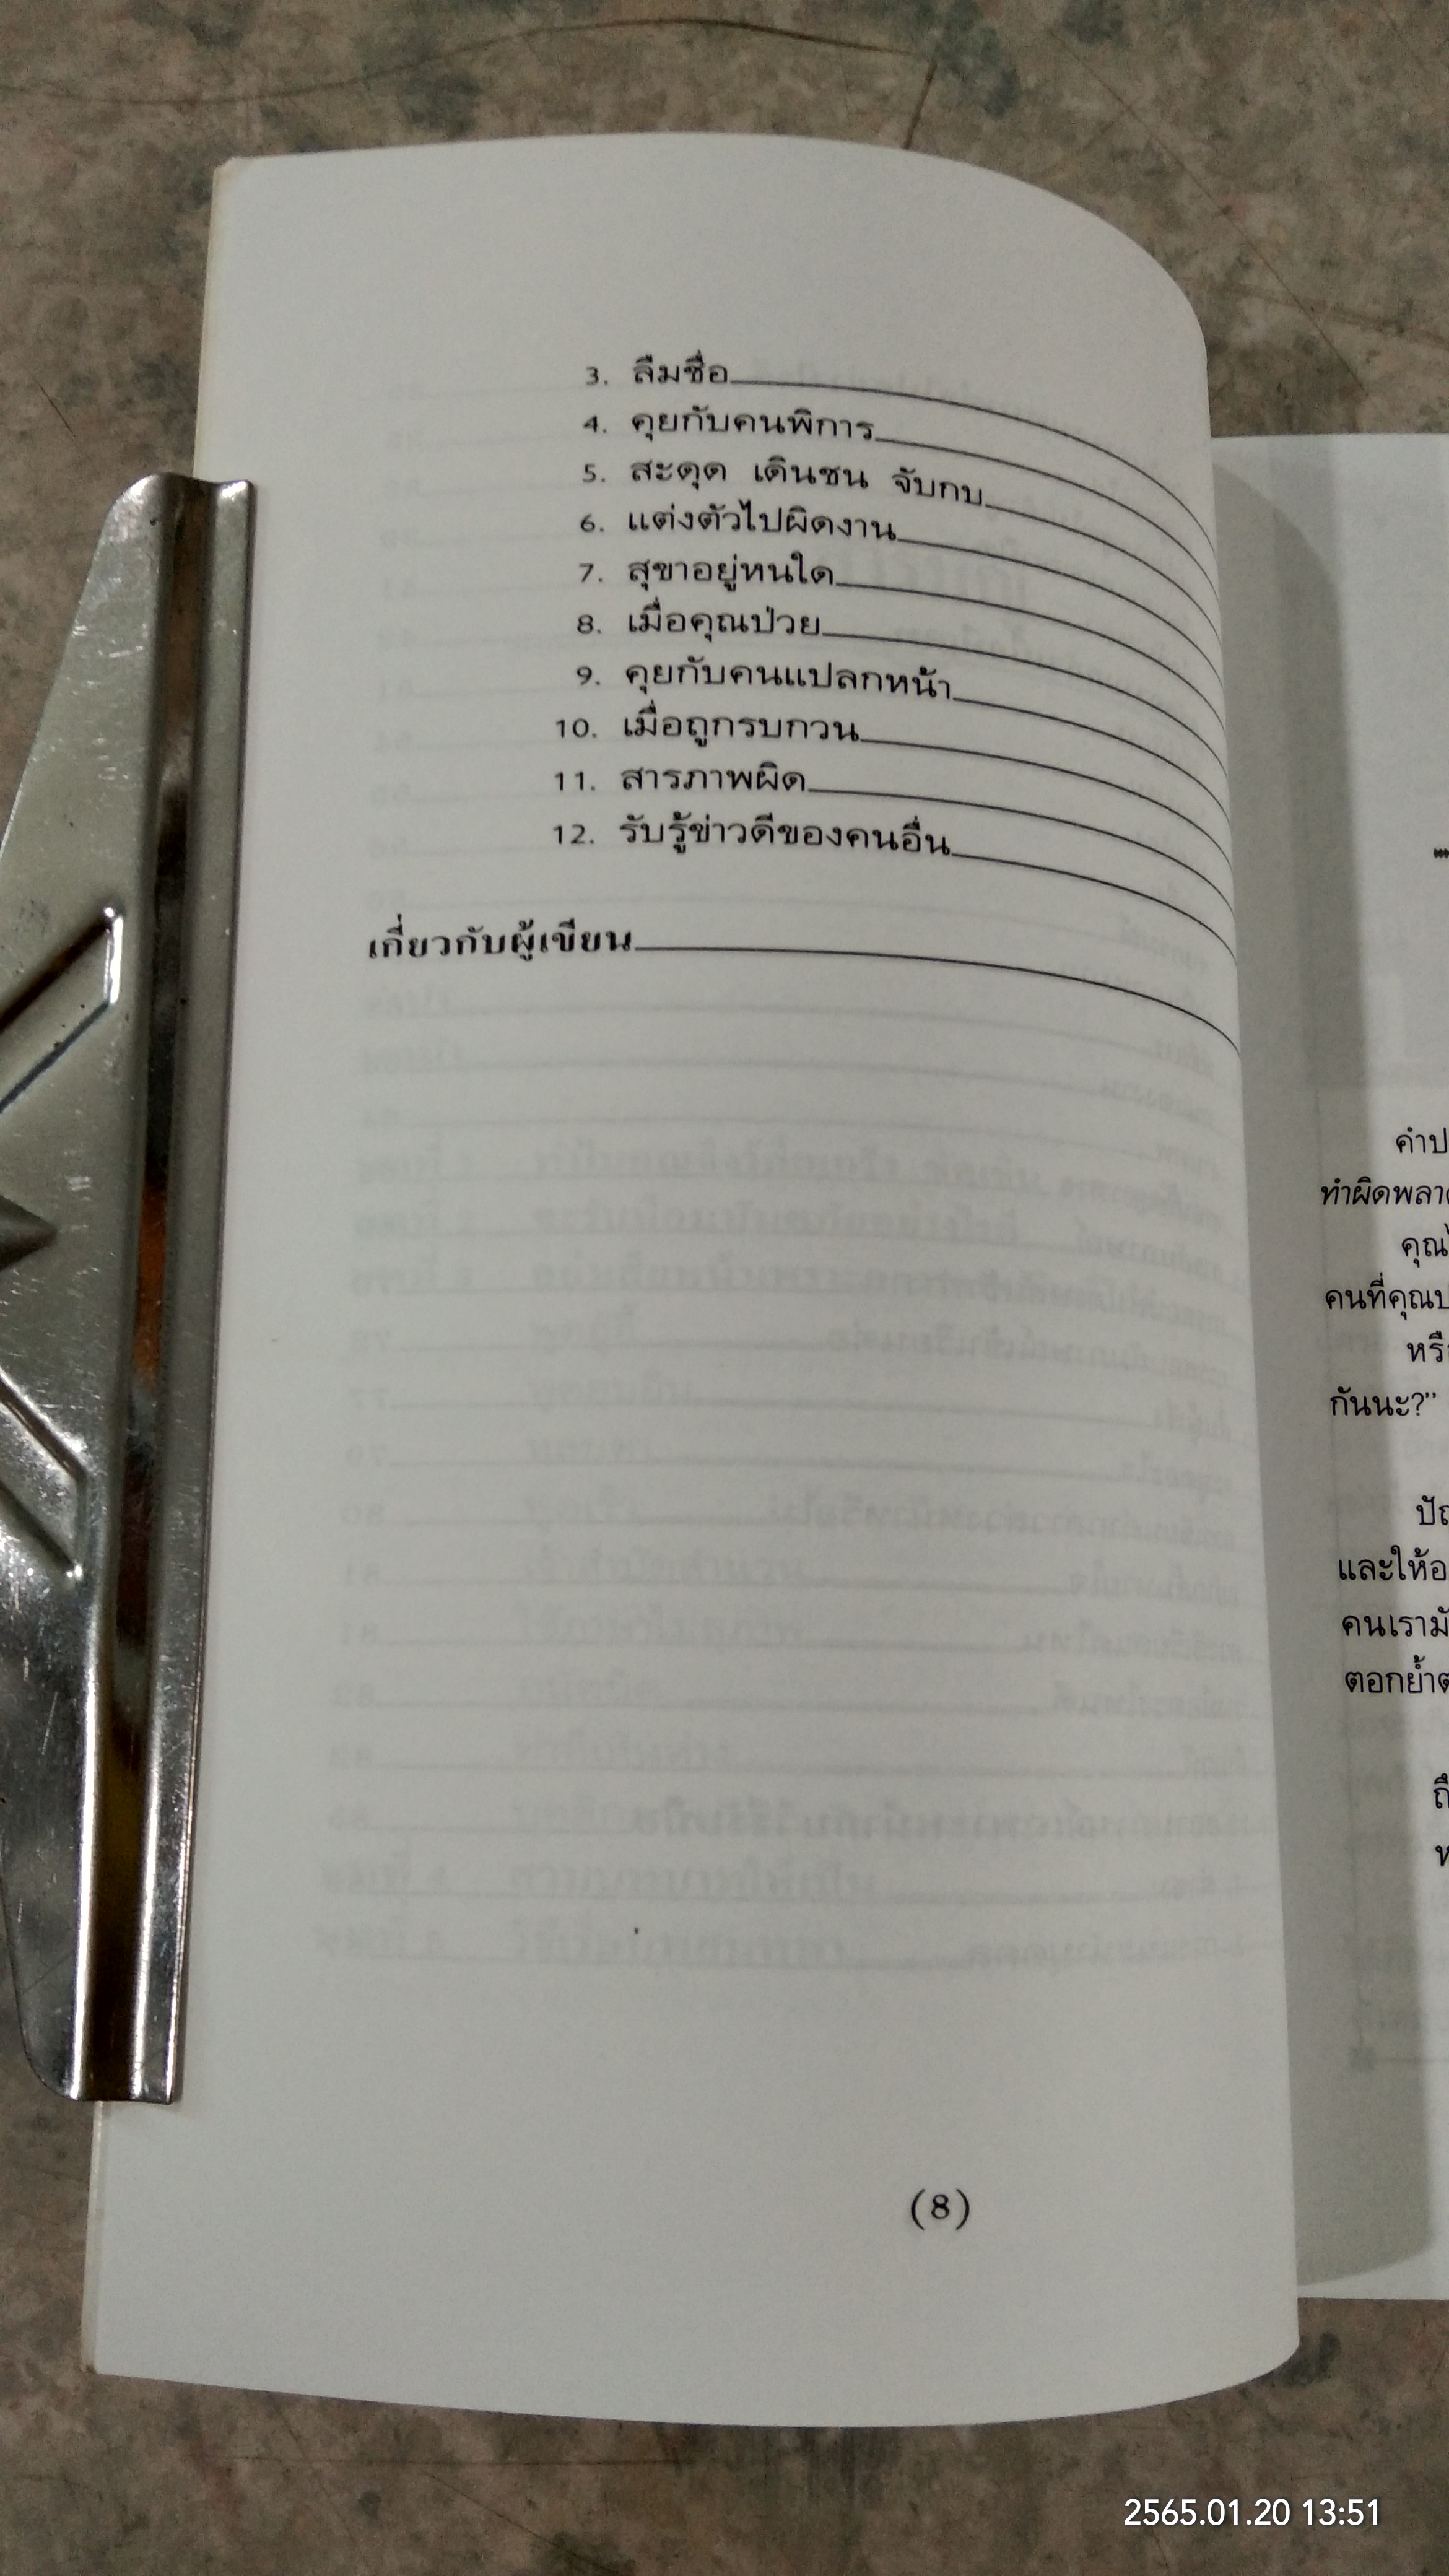 3. ลืมชื่อ
4. คุยกับคนพิการ
5. สะดุด เดินชน จับกบ
6. แต่งตัวไปผิดงาน
7. สุขาอยู่หนใด
8. เมื่อคุณป่วย
9. คุยกับคนแปลกหน้า
10. เมื่อถูกรบกวน
11. สารภาพผิด
12. รับรู้ข่าวดีของคนอื่น
เกี่ยวกับผู้เขียน
(8)
คำป
ทำผิดพลา
คุณ
คนที่คุณ
หรื
กันนะ?"
และให้อ
คนเรามั
ตอกย้ำต
2565.01.20 13:51